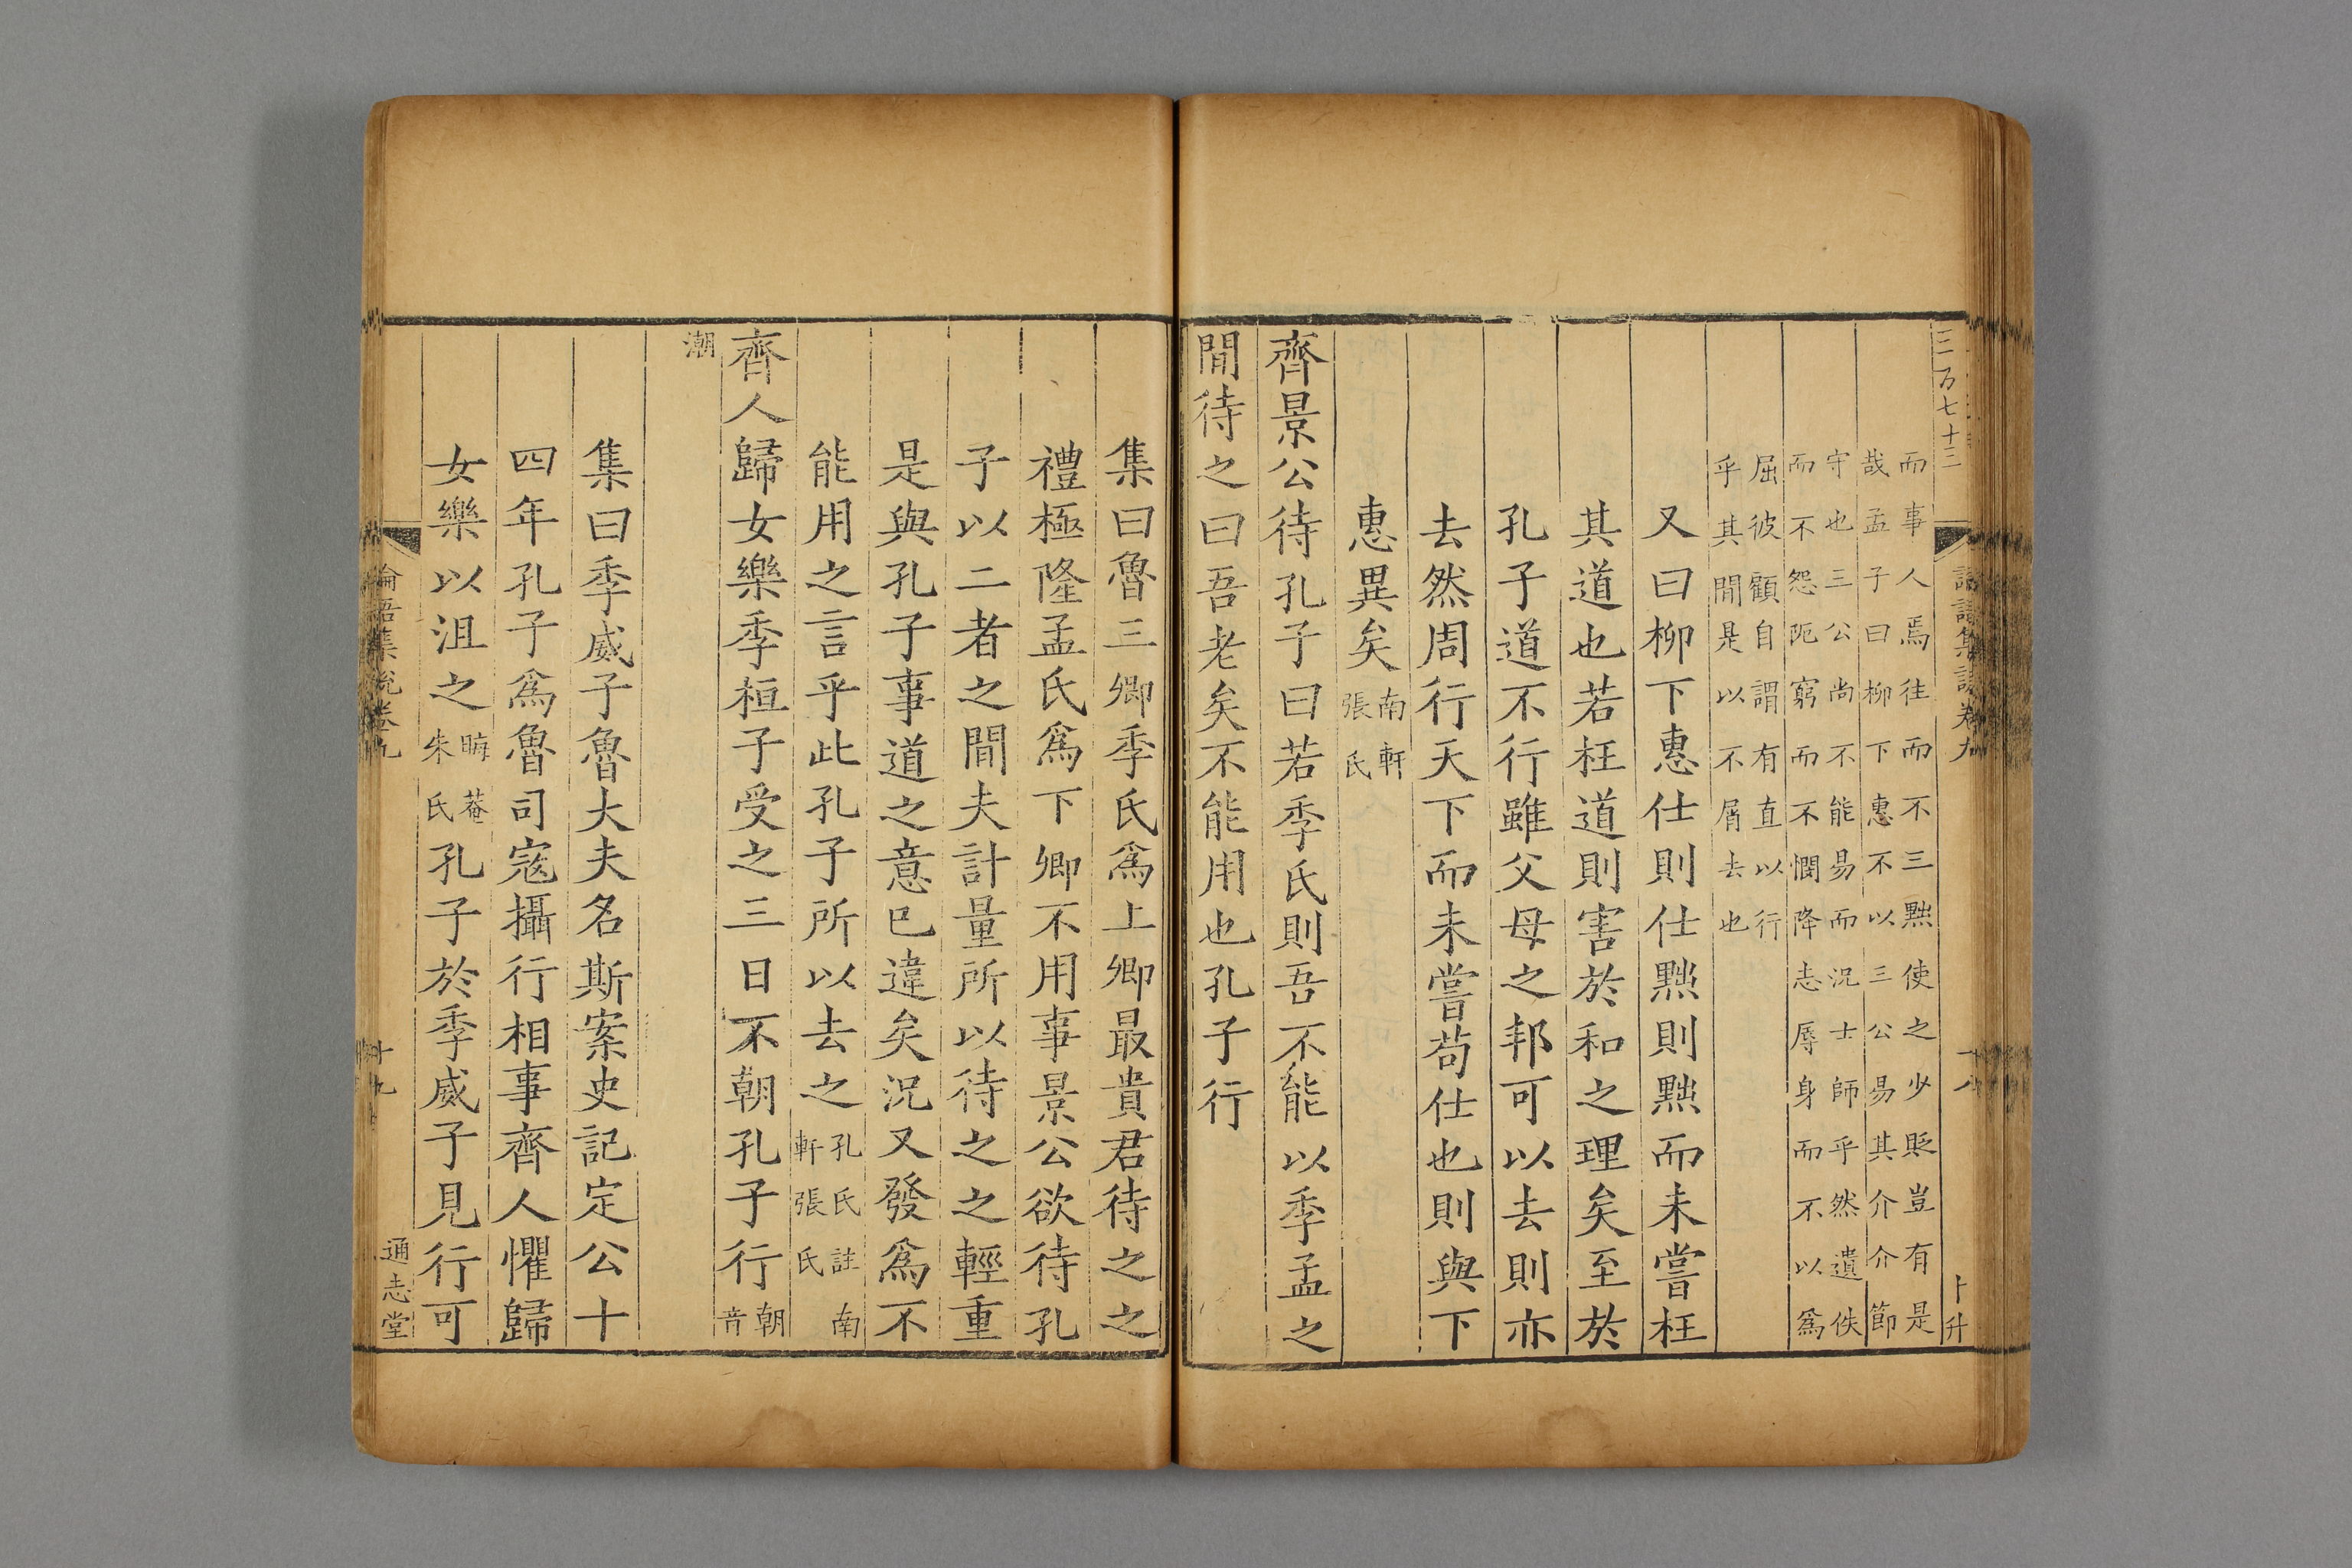 三万七十三
論語集說卷九
十八
卜升
而事人焉往而不三黜使之少貶豈有是
哉孟子曰柳下惠不以三公易其介介節
守也三公尚不能易而況士師乎然遺佚
而不怨阨窮而不憫降志辱身而不以為
屈彼顧自謂有直以行
乎其間是以不屑去也
又曰柳下惠仕則仕黜則黜而未嘗枉
其道也若枉道則害於和之理矣至於
孔子道不行雖父母之邦可以去則亦
去然周行天下而未嘗苟仕也則與下
惠異矣南軒張氏
齊景公待孔子曰若季氏則吾不能以季孟之
閒待之曰吾老矣不能用也孔子行
集曰魯三卿季氏爲上卿最貴君待之之
禮極隆孟氏爲下卿不用事景公欲待孔
子以二者之間夫計量所以待之之輕重
是與孔子事道之意已違矣況又發爲不
能用之言乎此孔子所以去之孔氏註南軒張氏
齊人歸女樂季桓子受之三日不朝孔子行朝音
潮
集曰季威子魯大夫名斯案史記定公十
四年孔子爲魯司寇攝行相事齊人懼歸
女樂以沮之晦菴朱氏孔子於季威子見行可
論語集說卷九
十九
通志堂